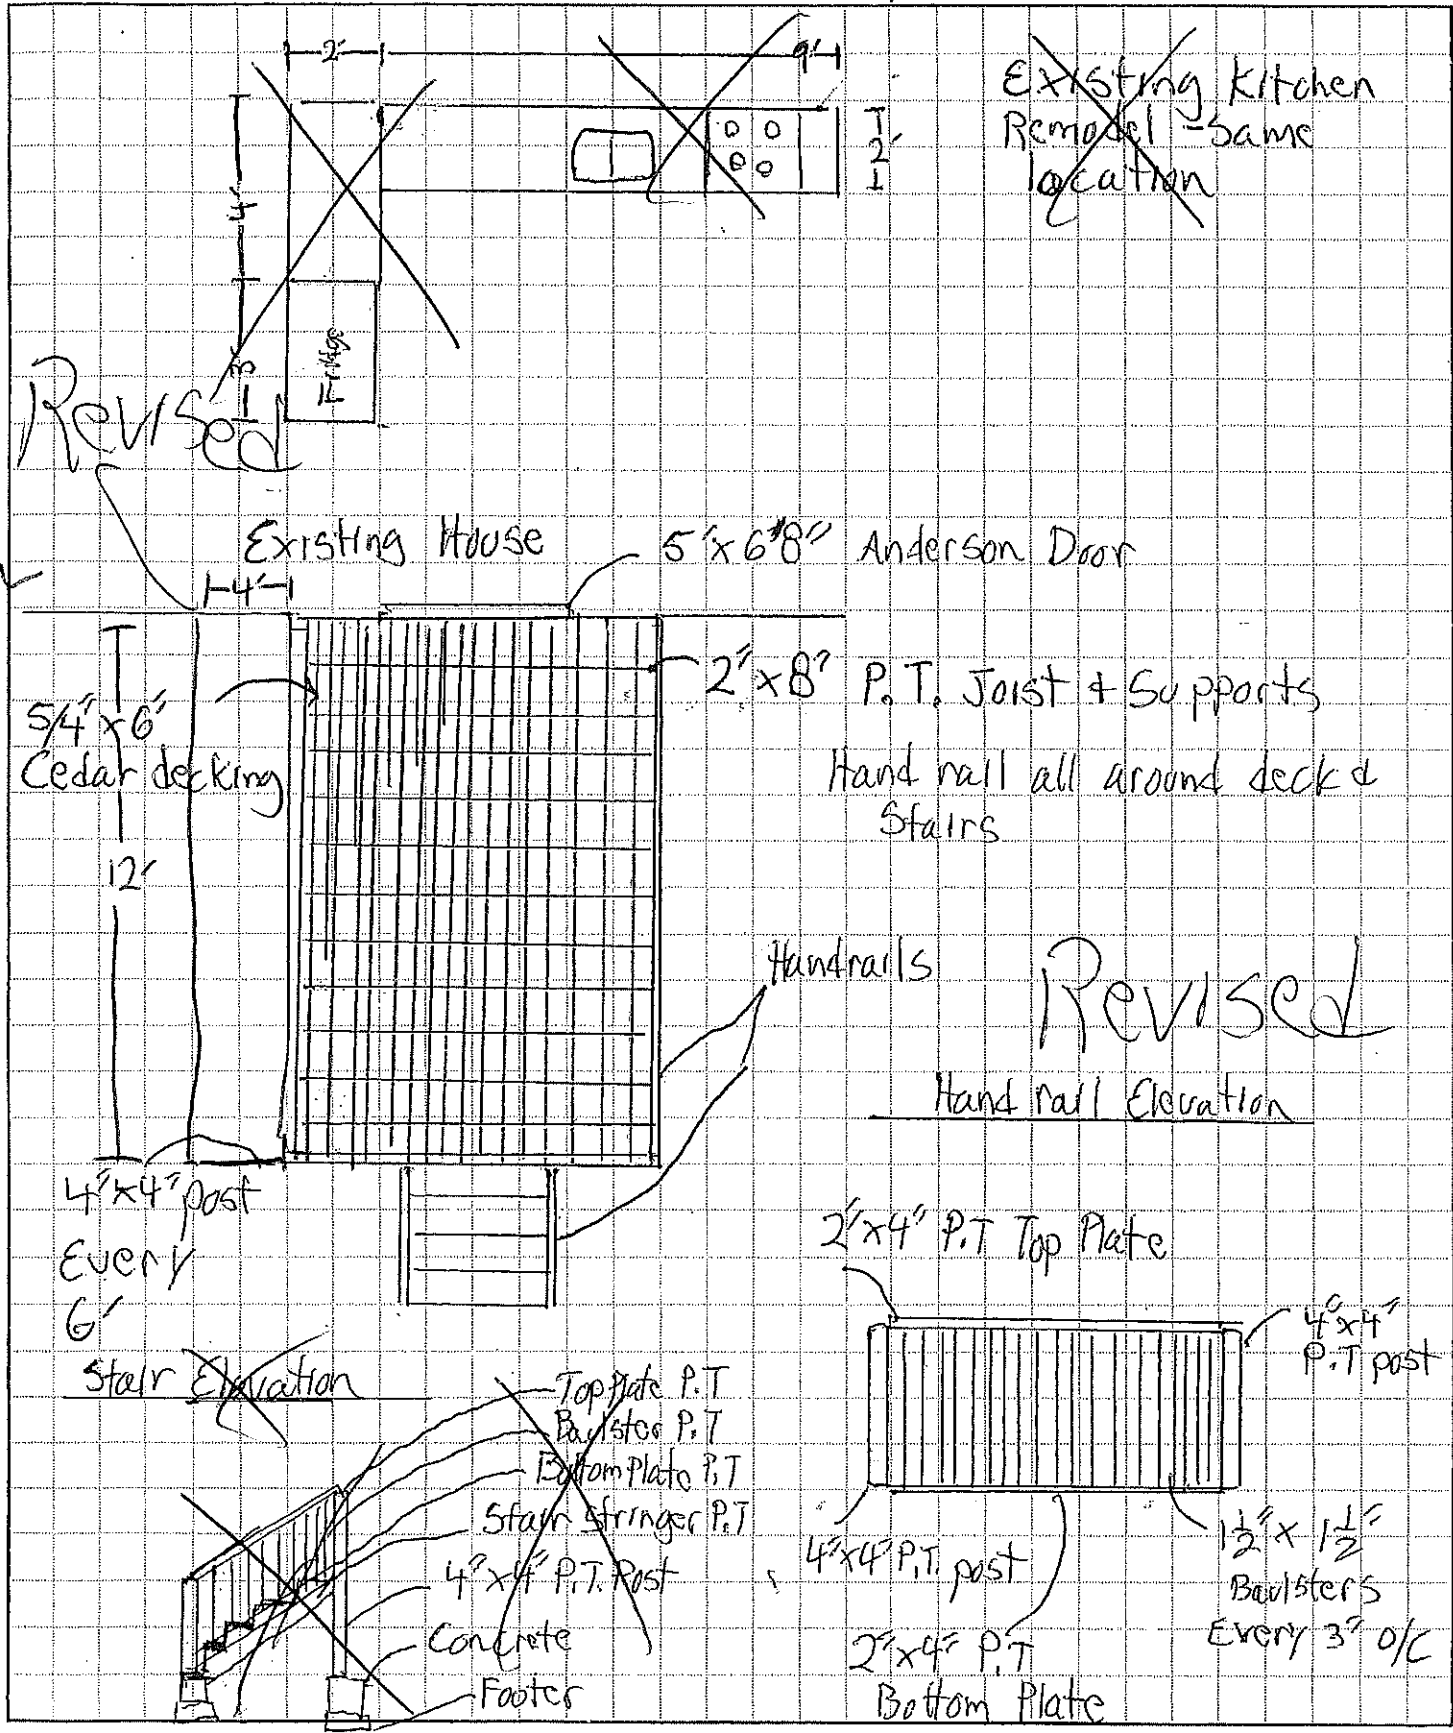 2'
9'
4'
2'
Existing Kitchen
Remodel - Same
location
3'
Fridge
Revised
Existing House
5' x 6'8" Anderson Door
4'
2" x 8" P.T. Joist & Supports
5/4" x 6"
Cedar decking
Hand rail all around deck &
Stairs
12'
Handrails
Revised
Hand rail Elevation
4" x 4" post
Every
6'
2" x 4" P.T Top Plate
4" x 4"
P.T post
Stair Elevation
Top Plate P.T
Baulster P.T
Bottom Plate P.T
Stair Stringer P.T
4" x 4" P.T. Post
Concrete
Footer
4" x 4" P.T. post
1 1/2" x 1 1/2"
Baulsters
Every 3" O/C
2" x 4" P.T
Bottom Plate